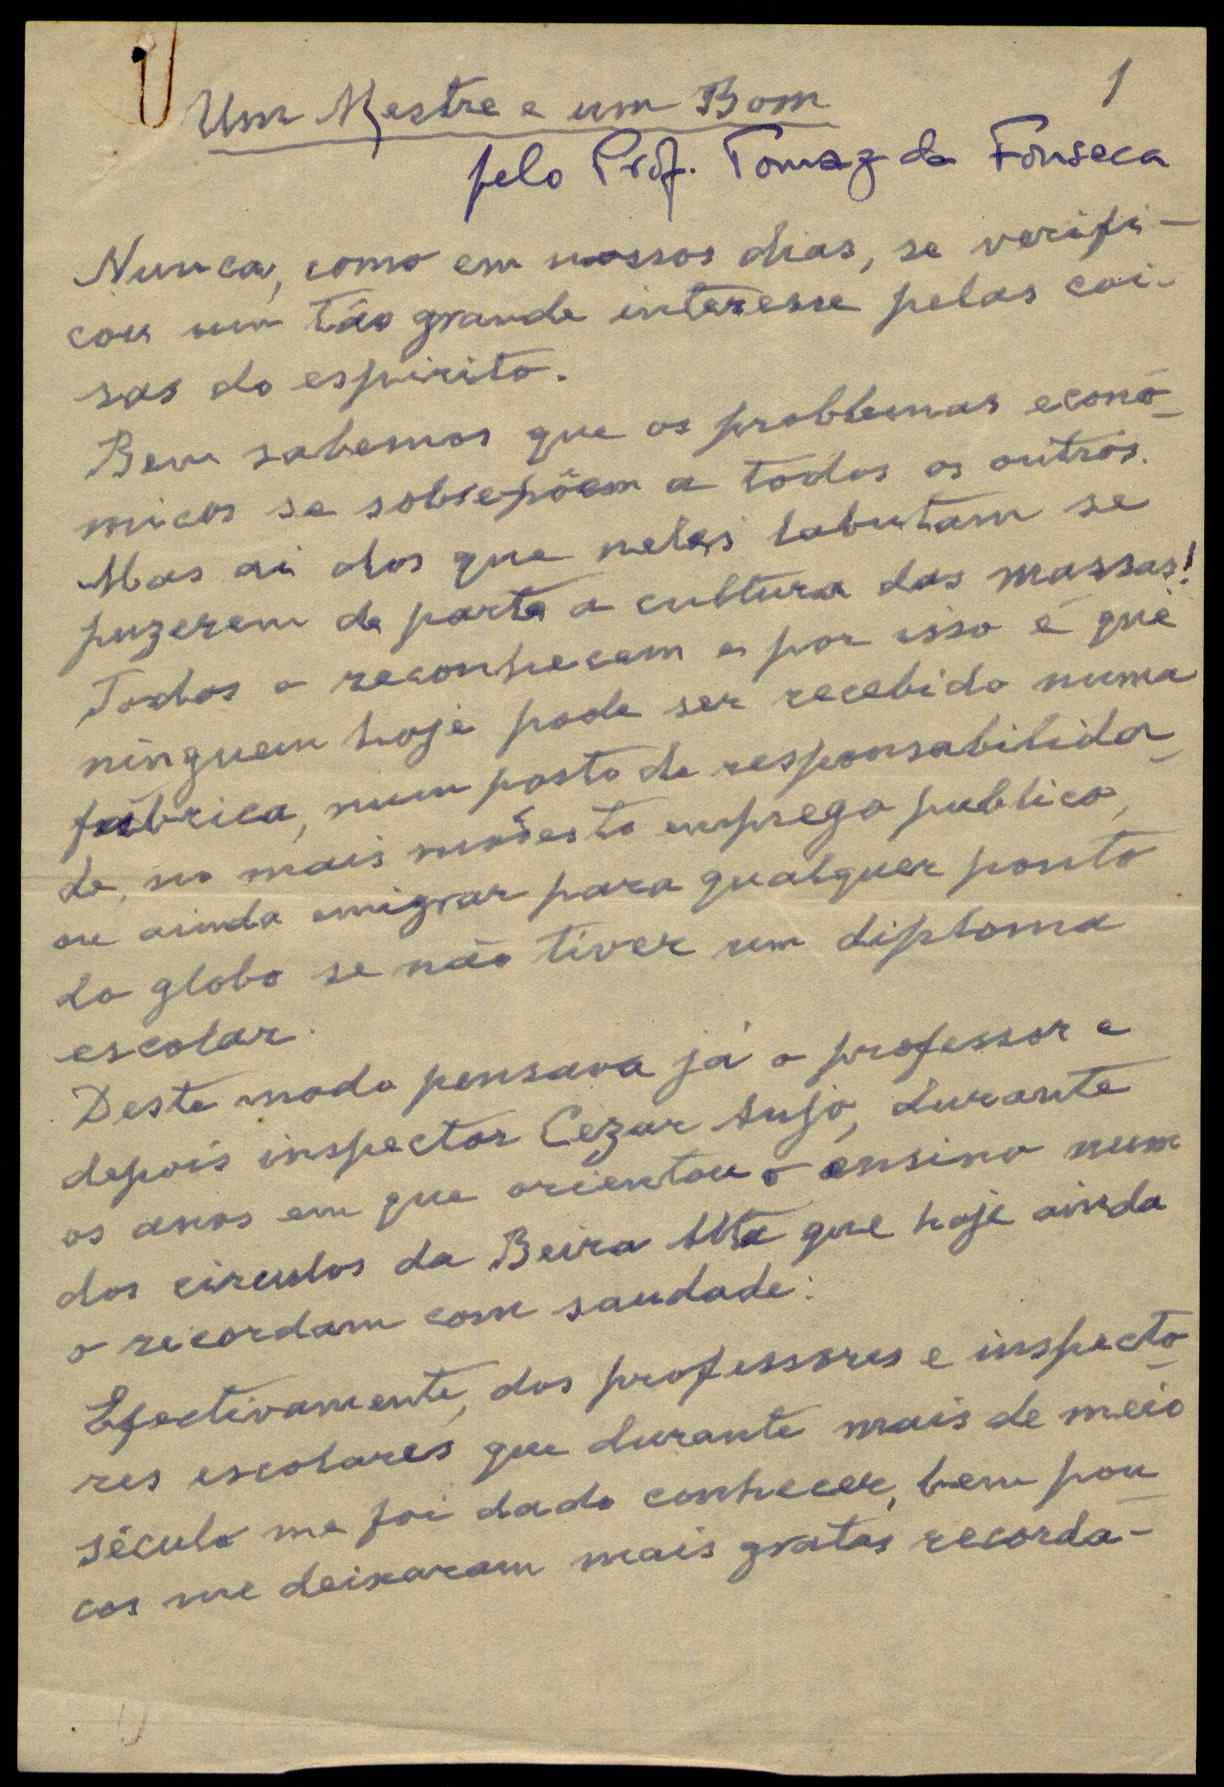 1
Um Mestre e um Bom
pelo Prof. Tomaz da Fonseca
Nunca, como em nossos dias, se verifi-
cou um tão grande interesse pelas coi-
sas do espirito.
Bem sabemos que os problemas econó-
micos se sobrepõem a todos os outros.
Mas ai dos que neles labutam se
puzerem de parte a cultura das massas!
Todos o reconhecem e por isso é que
ninguem hoje pode ser recebido numa
fábrica, num posto de responsabilida-
de, no mais modesto emprego publico,
ou ainda emigrar para qualquer ponto
do globo se não tiver um diploma
escolar.
Deste modo pensava já o professor e
depois inspector Cezar Anjo, durante
os anos em que orientou o ensino num
dos circulos da Beira Alta que hoje ainda
o recordam com saudade.
Efectivamente, dos professores e inspecto-
res escolares que durante mais de meio
século me foi dado conhecer, bem pou-
cos me deixaram mais gratas recorda-